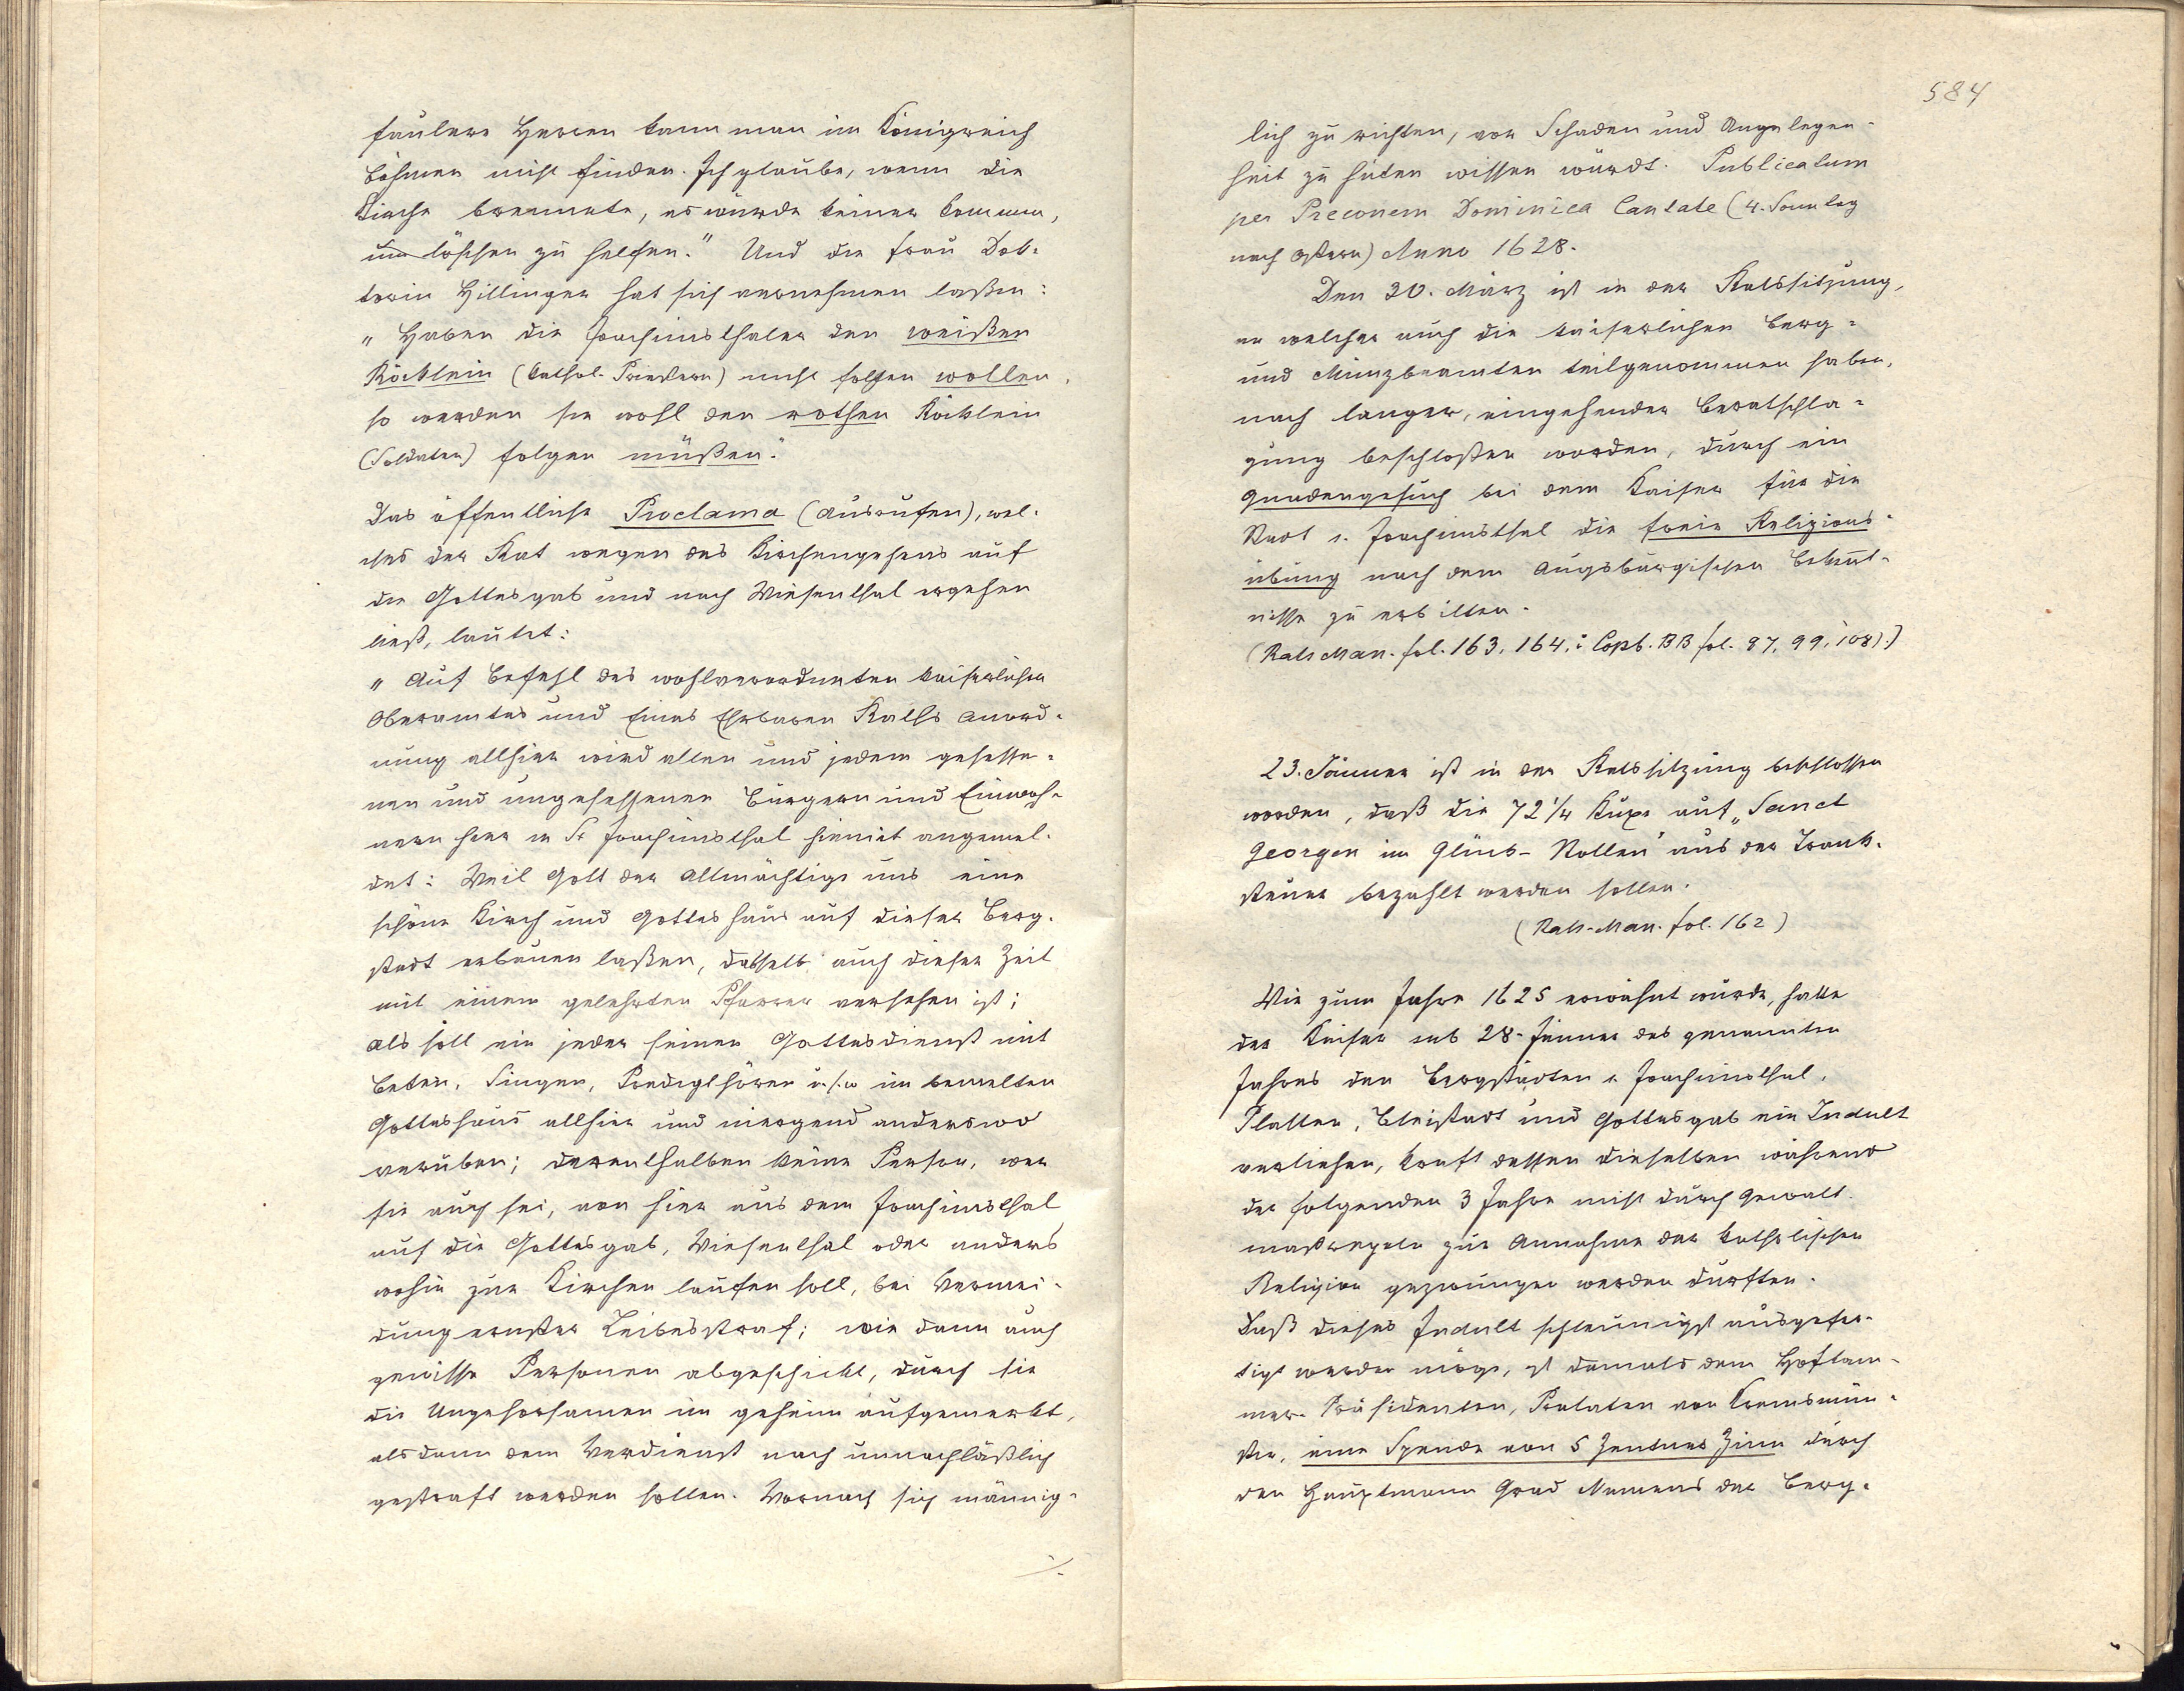 faulere Herren kann man im Königreich
Böhmen nicht finden. Ich glaube, wenn die
Kirche brennete, es würde keiner kommen,
um löschen zu helfen." Und die Frau Dok-
torin Hillinger hat sich vernehmen laßen:
"Haben die Joachimsthaler den weißen
Röcklein (kathol. Priestern) nicht folgen wollen,
so werden sie wohl den rothen Röcklein
(Soldaten) folgen müßen."
Das öffentliche Proclama (Ausrufen), wel-
ches der Rat wegen des Kirchengehens auf
die Gottesgab und nach Wiesenthal ergehen
ließ, lautet:
"Auf Befehl des wohlverordneten kaiserlichen
Oberamtes und Eines Ehrbaren Raths Anord-
nung allhier wird allen und jedem gesesse-
nen und ungesessenen Bürgern und Einwoh-
nern hier in St Joachimsthal hiemit angemel-
det: Weil Gott der Allmächtige uns eine
schöne Kirch und Gotteshaus auf dieser Berg-
stadt erbauen laßen, dasselb auch dieser Zeit
mit einem gelehrten Pfarrer versehen ist;
als soll ein jeder seinen Gottesdienst mit
Beten, Singen, Predigthören u.s.w im bemelten
Gotteshaus allhier und niergend anderswo
verüben; derenthalben keine Person, wer
sie auch sei, von hier aus dem Joachimsthal
auf die Gottesgab, Wiesenthal oder anders
wohin zur Kirchen laufen soll, bei Vermei-
dung ernster Leibesstraf; wie dann auch
gewisse Personen abgeschickt, durch sie
die Ungehorsamen im geheim aufgemerkt,
alsdann dem Verdienst nach unnachläßlich
gestraft werden sollen. Wornach sich männig-
./.
584
lich zu richten, vor Schaden und Ungelegen-
heit zu hüten wissen würdt. Publicatum
per Preconem Dominica Cantate (4. Sonntag
nach Ostern) Anno 1628.
Den 30. März ist in der Ratssitzung,
an welcher auch die kaiserlichen Berg-
und Münzbeamten teilgenommen haben,
nach langer, eingehender Beratschla-
gung beschloßen worden, durch ein
Gnadengesuch bei dem Kaiser für die
Stadt s. Joachimsthal die freie Religions-
übung nach dem Augsburgischen Bekent-
nisse zu erbitten.
(Rats Man. fol. 163, 164.; Copb. BB fol. 97, 99, 108).)
23. Jänner ist in der Ratssitzung beschlossen
worden, daß die 72 1/4 Kuxe auf „Sanct
Georgen im Glück-Stollen" aus der Trank-
steuer bezahlt werden sollen.
(Rats-Man. fol. 162)
Wie zum Jahre 1625 erwähnt wurde, hatte
der Kaiser sub 28. Jänner des genannten
Jahres den Bergstädten s. Joachimsthal,
Platten, Bleistadt und Gottesgab ein Indult
verliehen, kraft dessen dieselben während
der folgenden 3 Jahre nicht durch Gewalt-
maßregeln zur Annahme der katholischen
Religion gezwungen werden durften.
Daß dieses Indult schleunigst ausgefer-
tigt werden möge, ist damals dem Hofkam-
mer-Präsidenten, Prälaten von Kremsmün-
ster, eine Spende von 5 Zentner Zinn durch
den Hauptmann Grad Namens der Berg-